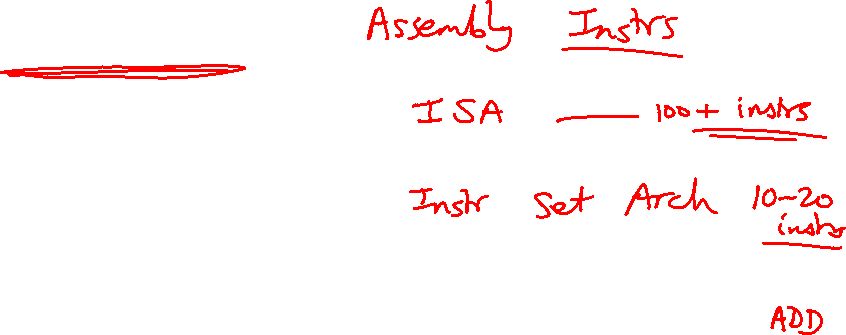 Assembly Instrs
ISA — 100+ instrs
Instr Set Arch 10-20
instrs
ADD